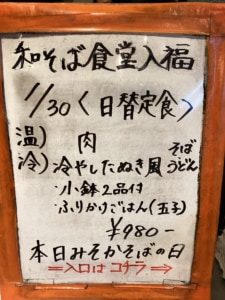 和そば食堂入福
1/30〈日替定食〉
温) 肉
冷) 冷やしたぬき風 そば うどん
・小鉢2品付
・ふりかけごはん(玉子)
¥980-
本日みそかそばの日
⇐入口はコチラ⇒